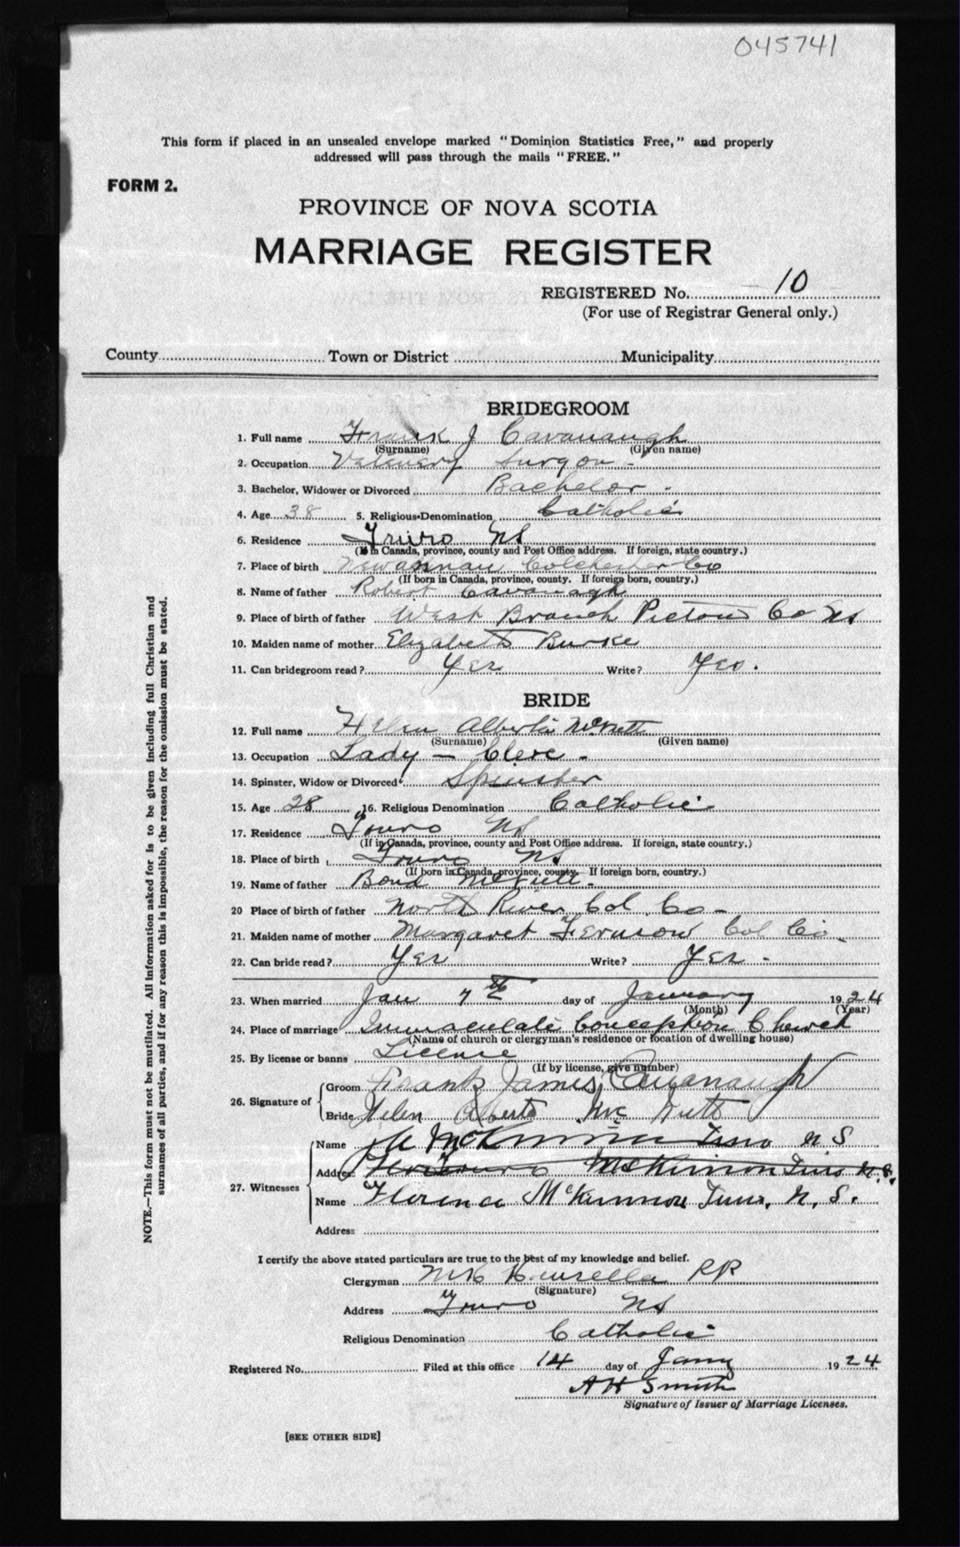 045741
This form if placed in an unsealed envelope marked "Dominion Statistics Free," and properly
addressed will pass through the mails "FREE."
FORM 2.
PROVINCE OF NOVA SCOTIA
MARRIAGE REGISTER
REGISTERED No. 10
(For use of Registrar General only.)
County Town or District Municipality
BRIDEGROOM
1. Full name Frank J Cavanaugh
(Surname) (Given name)
2. Occupation Surgon -
3. Bachelor, Widower or Divorced Bachelor -
4. Age 38 5. Religious Denomination Catholic
6. Residence Truro NS
(If in Canada, province, county and Post Office address. If foreign, state country.)
7. Place of birth Colchester Co
(If born in Canada, province, county. If foreign born, country.)
8. Name of father Robert Cavanagh
9. Place of birth of father West Branch Pictou Co NS
10. Maiden name of mother Elizabeth Burke
11. Can bridegroom read? Yes Write? Yes.
BRIDE
12. Full name Helen Alberta McNutt
(Surname) (Given name)
13. Occupation Lady - Clerc -
14. Spinster, Widow or Divorced Spinster
15. Age 28 16. Religious Denomination Catholic
17. Residence Truro NS
(If in Canada, province, county and Post Office address. If foreign, state country.)
18. Place of birth Truro NS
(If born in Canada, province, county. If foreign born, country.)
19. Name of father Bond McNutt -
20 Place of birth of father North River Col. Co -
21. Maiden name of mother Margaret Col Co -
22. Can bride read? Yes Write? Yes -
23. When married Jan 7th day of January 1924
(Month) (Year)
24. Place of marriage Immaculate Conception Church
(Name of church or clergyman's residence or location of dwelling house)
25. By license or banns License
(If by license, give number)
26. Signature of Groom Frank James Cavanaugh
Bride Helen Alberta Mc Nutt
27. Witnesses Name McKinnon Truro N S
Address McKinnon Truro N.S.
Name Florence McKinnon Truro, N. S.
Address
I certify the above stated particulars are true to the best of my knowledge and belief.
Clergyman Kinsella PP
(Signature)
Address Truro NS
Religious Denomination Catholic
Registered No. Filed at this office 14 day of Jany 1924
A H Smith
Signature of Issuer of Marriage Licenses.
[SEE OTHER SIDE]
NOTE.—This form must not be mutilated. All information asked for is to be given including full Christian and
surnames of all parties, and if for any reason this is impossible, the reason for the omission must be stated.